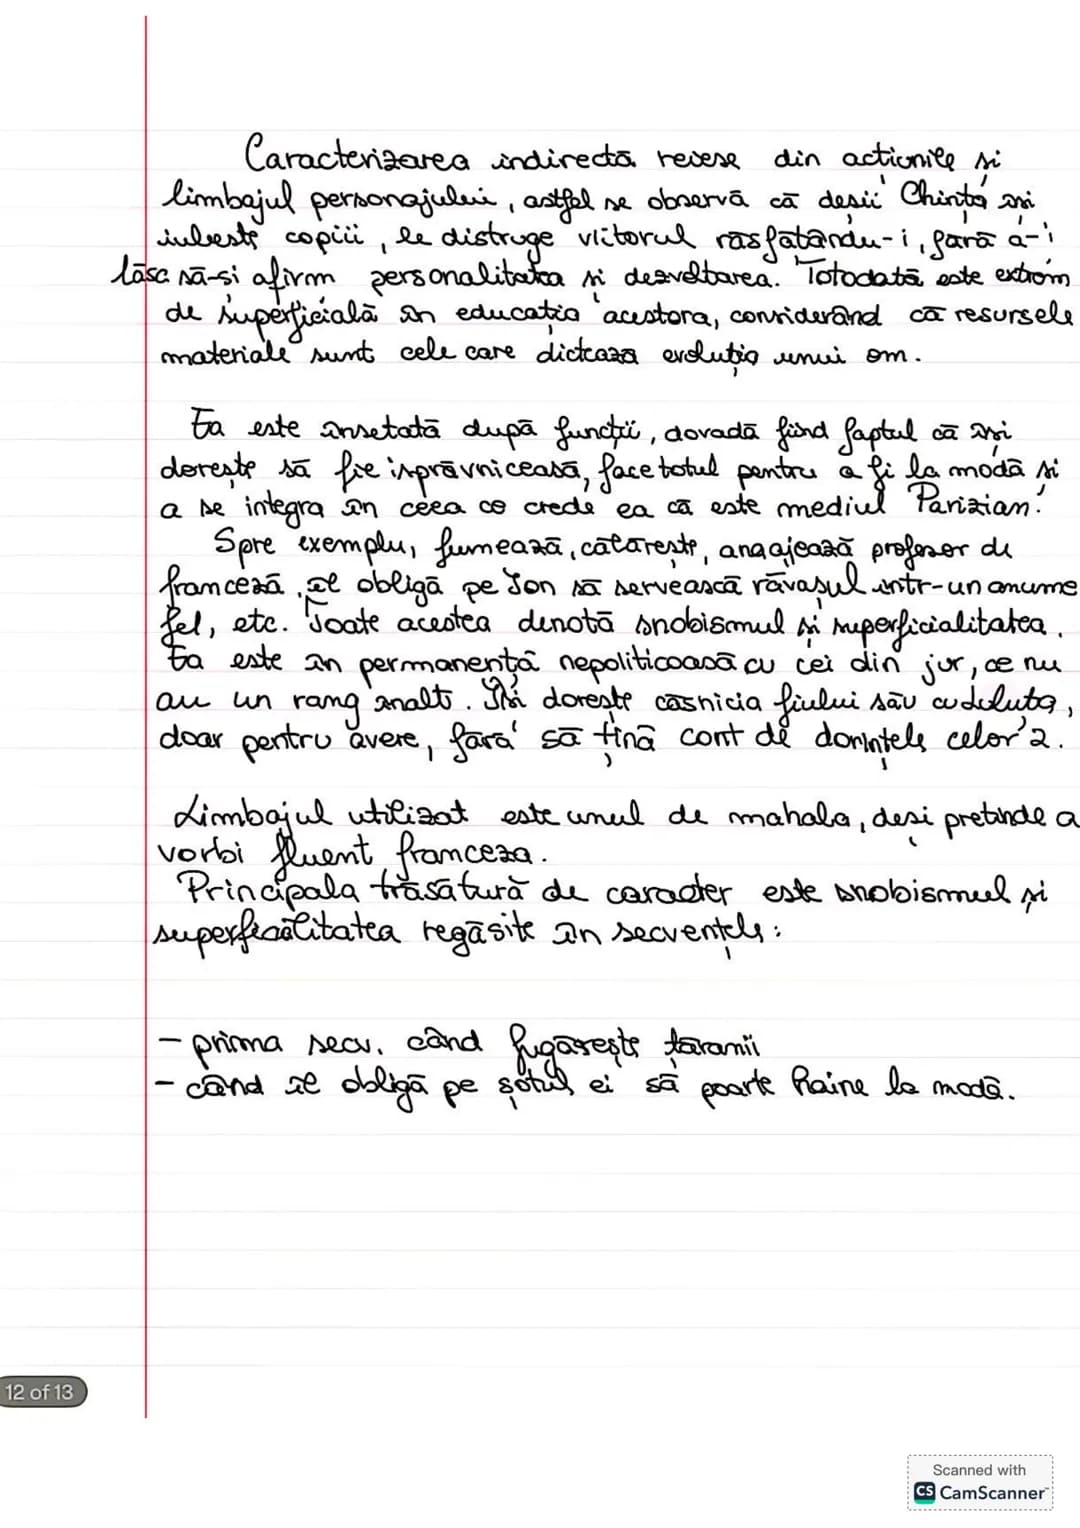 Caracterizarea indirectă reiese din acțiunile și
limbajul personajului, astfel se observă că deșii Chirița își
iubește copiii, le distruge viitorul răsfățându-i, fără a-i
lăsa să-și afirm personalitatea și dezvoltarea. Totodată este extrem
de superficială în educația acestora, considerând că resursele
materiale sunt cele care dictează evoluția unui om.
Ea este însetată după funcții, dovadă fiind faptul că își
dorește să fie ispravniceasă, face totul pentru a fi la modă și
a se integra în ceea ce crede ea că este mediul Parizian.
Spre exemplu, fumează, călărește, angajează profesor de
franceză, îl obligă pe Ion să servească răvașul intr-un anume
fel, etc. Toate acestea denotă snobismul și superficialitatea.
Ea este în permanență nepoliticoasă cu cei din jur, ce nu
au un rang înalt. Își dorește căsnicia fiului său cu Luluța,
doar pentru avere, fără să țină cont de dorințele celor 2.
Limbajul utilizat este unul de mahala, deși pretinde a
vorbi fluent franceza.
Principala trăsătură de caracter este snobismul și
superficialitatea regăsite în secvențele:
- prima secv. când fugărește țăranii
- când îl obligă pe soțul ei să poarte haine la modă.
12 of 13
Scanned with
CS CamScanner